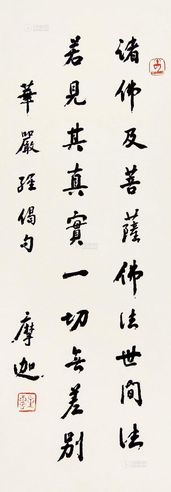 诸佛及菩薩佛法世间法
若見其真實一切无差别
華嚴經偈句
摩迦